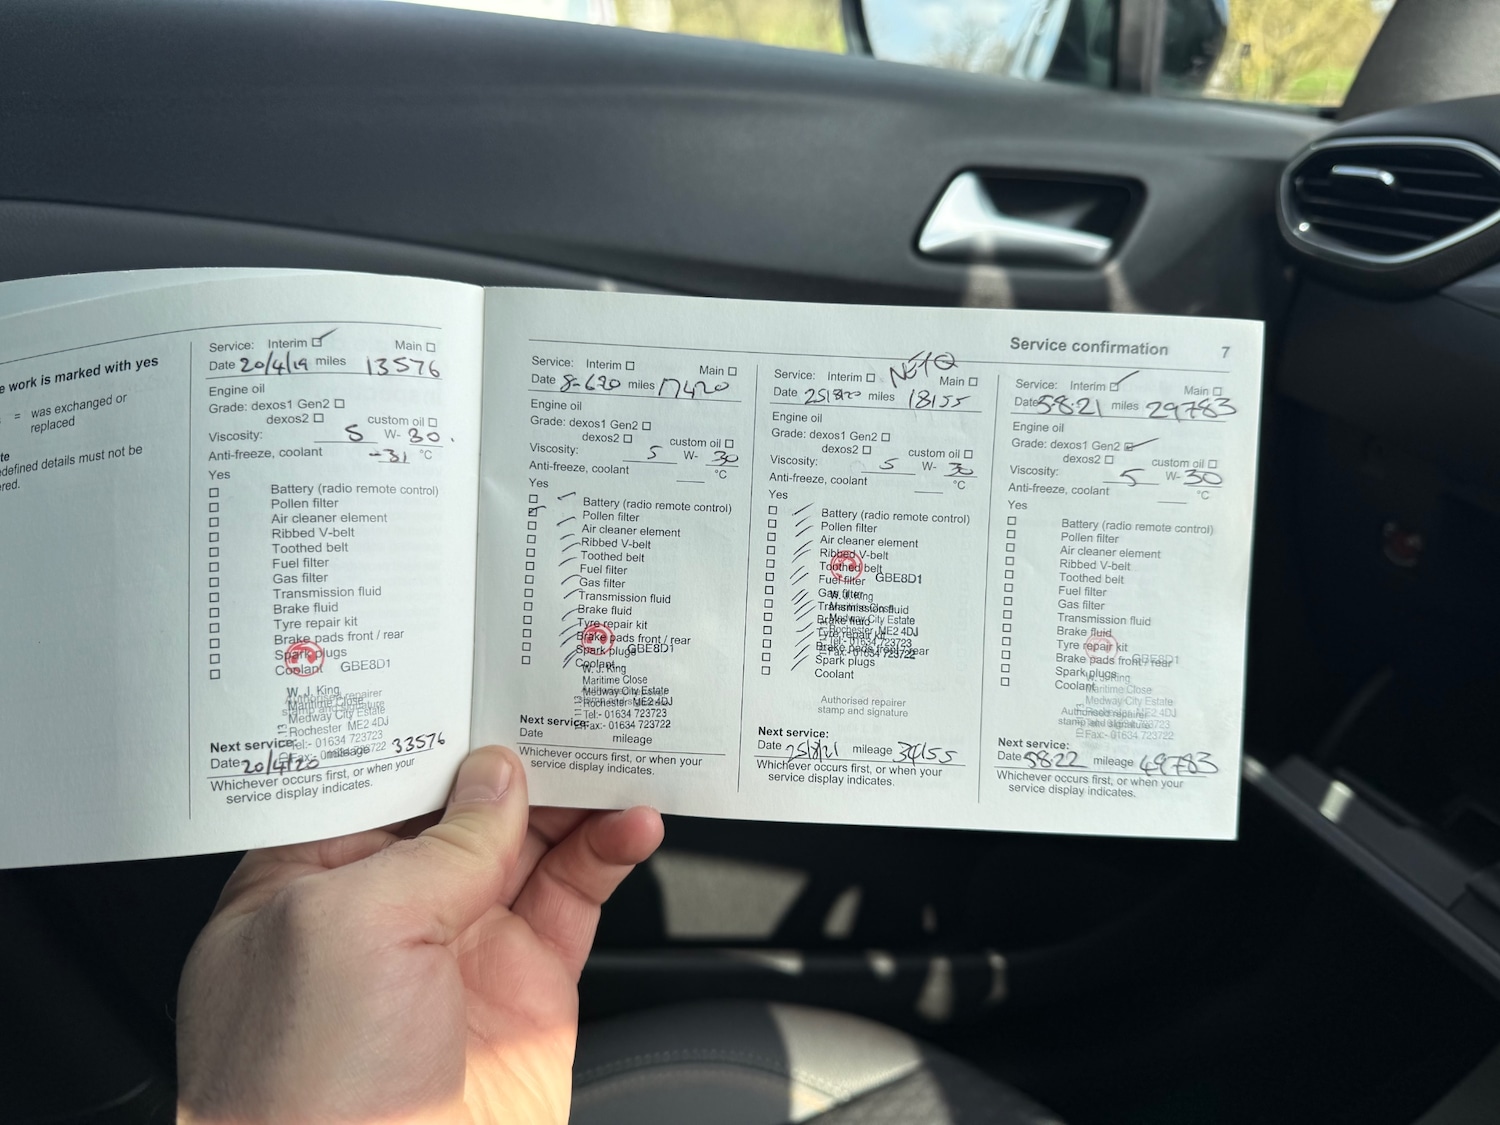 e work is marked with yes
= was exchanged or
replaced
te
defined details must not be
red.
Service: Interim ☑ Main ☐
Date 20/4/19 miles 13576
Engine oil
Grade: dexos1 Gen2 ☐
dexos2 ☐ custom oil ☐
Viscosity: 5 W- 30.
Anti-freeze, coolant -31 °C
Yes
☐ Battery (radio remote control)
☐ Pollen filter
☐ Air cleaner element
☐ Ribbed V-belt
☐ Toothed belt
☐ Fuel filter
☐ Gas filter
☐ Transmission fluid
☐ Brake fluid
☐ Tyre repair kit
☐ Brake pads front / rear
☐ Spark plugs
☐ Coolant
GBE8D1
W. J. King
Authorised repairer
stamp and signature
Maritime Close
Medway City Estate
Rochester ME2 4DJ
Tel:- 01634 723723
Fax:- 01634 723722
Next service:
Date 20/4/20 mileage 33576
Whichever occurs first, or when your
service display indicates.
Service confirmation 7
Service: Interim ☐ Main ☐
Date 8-620 miles 17420
Engine oil
Grade: dexos1 Gen2 ☐
dexos2 ☐ custom oil ☐
Viscosity: 5 W- 30
Anti-freeze, coolant ___ °C
Yes
☐ Battery (radio remote control)
☑ Pollen filter
☐ Air cleaner element
☐ Ribbed V-belt
☐ Toothed belt
☐ Fuel filter
☐ Gas filter
☐ Transmission fluid
☐ Brake fluid
☐ Tyre repair kit
☐ Brake pads front / rear
☐ Spark plugs
☐ Coolant
GBE8D1
W. J. King
Maritime Close
Medway City Estate
Rochester ME2 4DJ
Tel:- 01634 723723
Fax:- 01634 723722
Next service:
Date mileage
Whichever occurs first, or when your
service display indicates.
Service: Interim ☐ Main ☐
Date 25/8/20 miles 18155
Engine oil
Grade: dexos1 Gen2 ☐
dexos2 ☐ custom oil ☐
Viscosity: 5 W- 30
Anti-freeze, coolant ___ °C
Yes
☐ Battery (radio remote control)
☐ Pollen filter
☐ Air cleaner element
☐ Ribbed V-belt
☐ Toothed belt
☐ Fuel filter
☐ Gas filter
☐ Transmission fluid
☐ Brake fluid
☐ Tyre repair kit
☐ Brake pads front / rear
☐ Spark plugs
☐ Coolant
GBE8D1
W. J. King
Maritime Close
Medway City Estate
Rochester ME2 4DJ
Tel:- 01634 723723
Fax:- 01634 723722
Authorised repairer
stamp and signature
Next service:
Date 25/8/21 mileage 34155
Whichever occurs first, or when your
service display indicates.
Service: Interim ☑ Main ☐
Date 5.8.21 miles 29783
Engine oil
Grade: dexos1 Gen2 ☑
dexos2 ☐ custom oil ☐
Viscosity: 5 W- 30
Anti-freeze, coolant ___ °C
Yes
☐ Battery (radio remote control)
☐ Pollen filter
☐ Air cleaner element
☐ Ribbed V-belt
☐ Toothed belt
☐ Fuel filter
☐ Gas filter
☐ Transmission fluid
☐ Brake fluid
☐ Tyre repair kit
☐ Brake pads front / rear
☐ Spark plugs
☐ Coolant
GBE8D1
W. J. King
Maritime Close
Medway City Estate
Rochester ME2 4DJ
Authorised repairer
stamp and signature
Tel:- 01634 723723
Fax:- 01634 723722
Next service:
Date 5822 mileage 49783
Whichever occurs first, or when your
service display indicates.